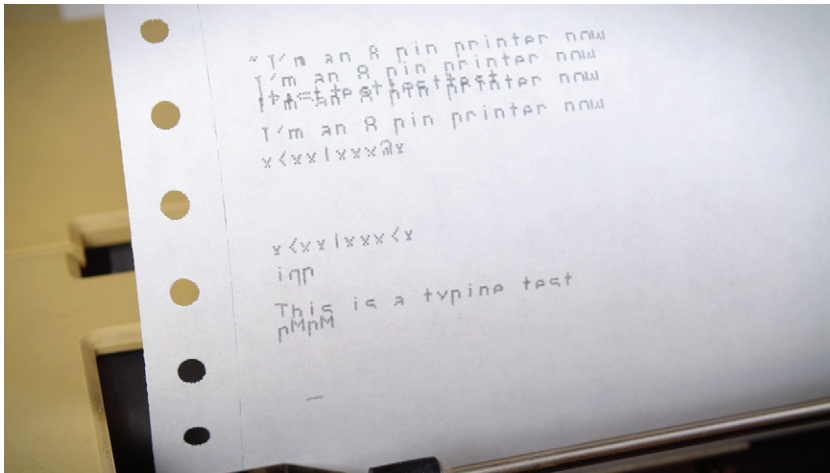 " I'm an 8 pin printer now
I'm an 8 pin printer now
I'm an 8 pin printer now
I'm an 8 pin printer now
x<xx|xxx@x
x<xx|xxx<x
iqp
This is a typing test
pMpM
_